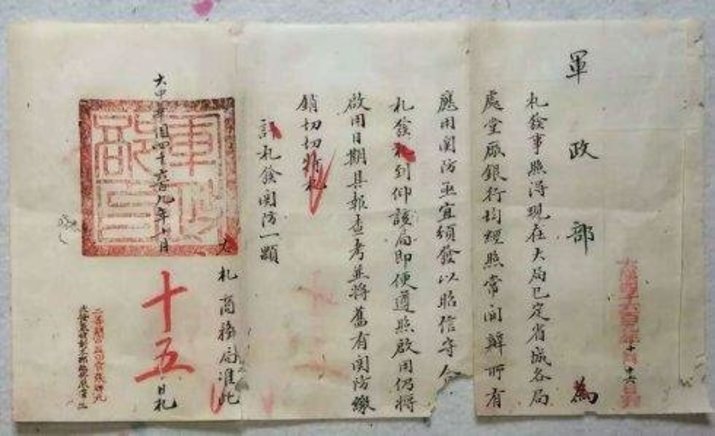 軍政部 為
札發事照得現在大局已定省城各局
處堂廠銀行均經照常開辦所有
應用関防亟宜頒發以昭信守合
札發札到仰該局即便遵照啟用仍將
啟用日期具報查考並將舊有関防繳
銷切切特札
計札發関防一顆
右札商務局准此
大中華国四千六百九年 月
十五日札